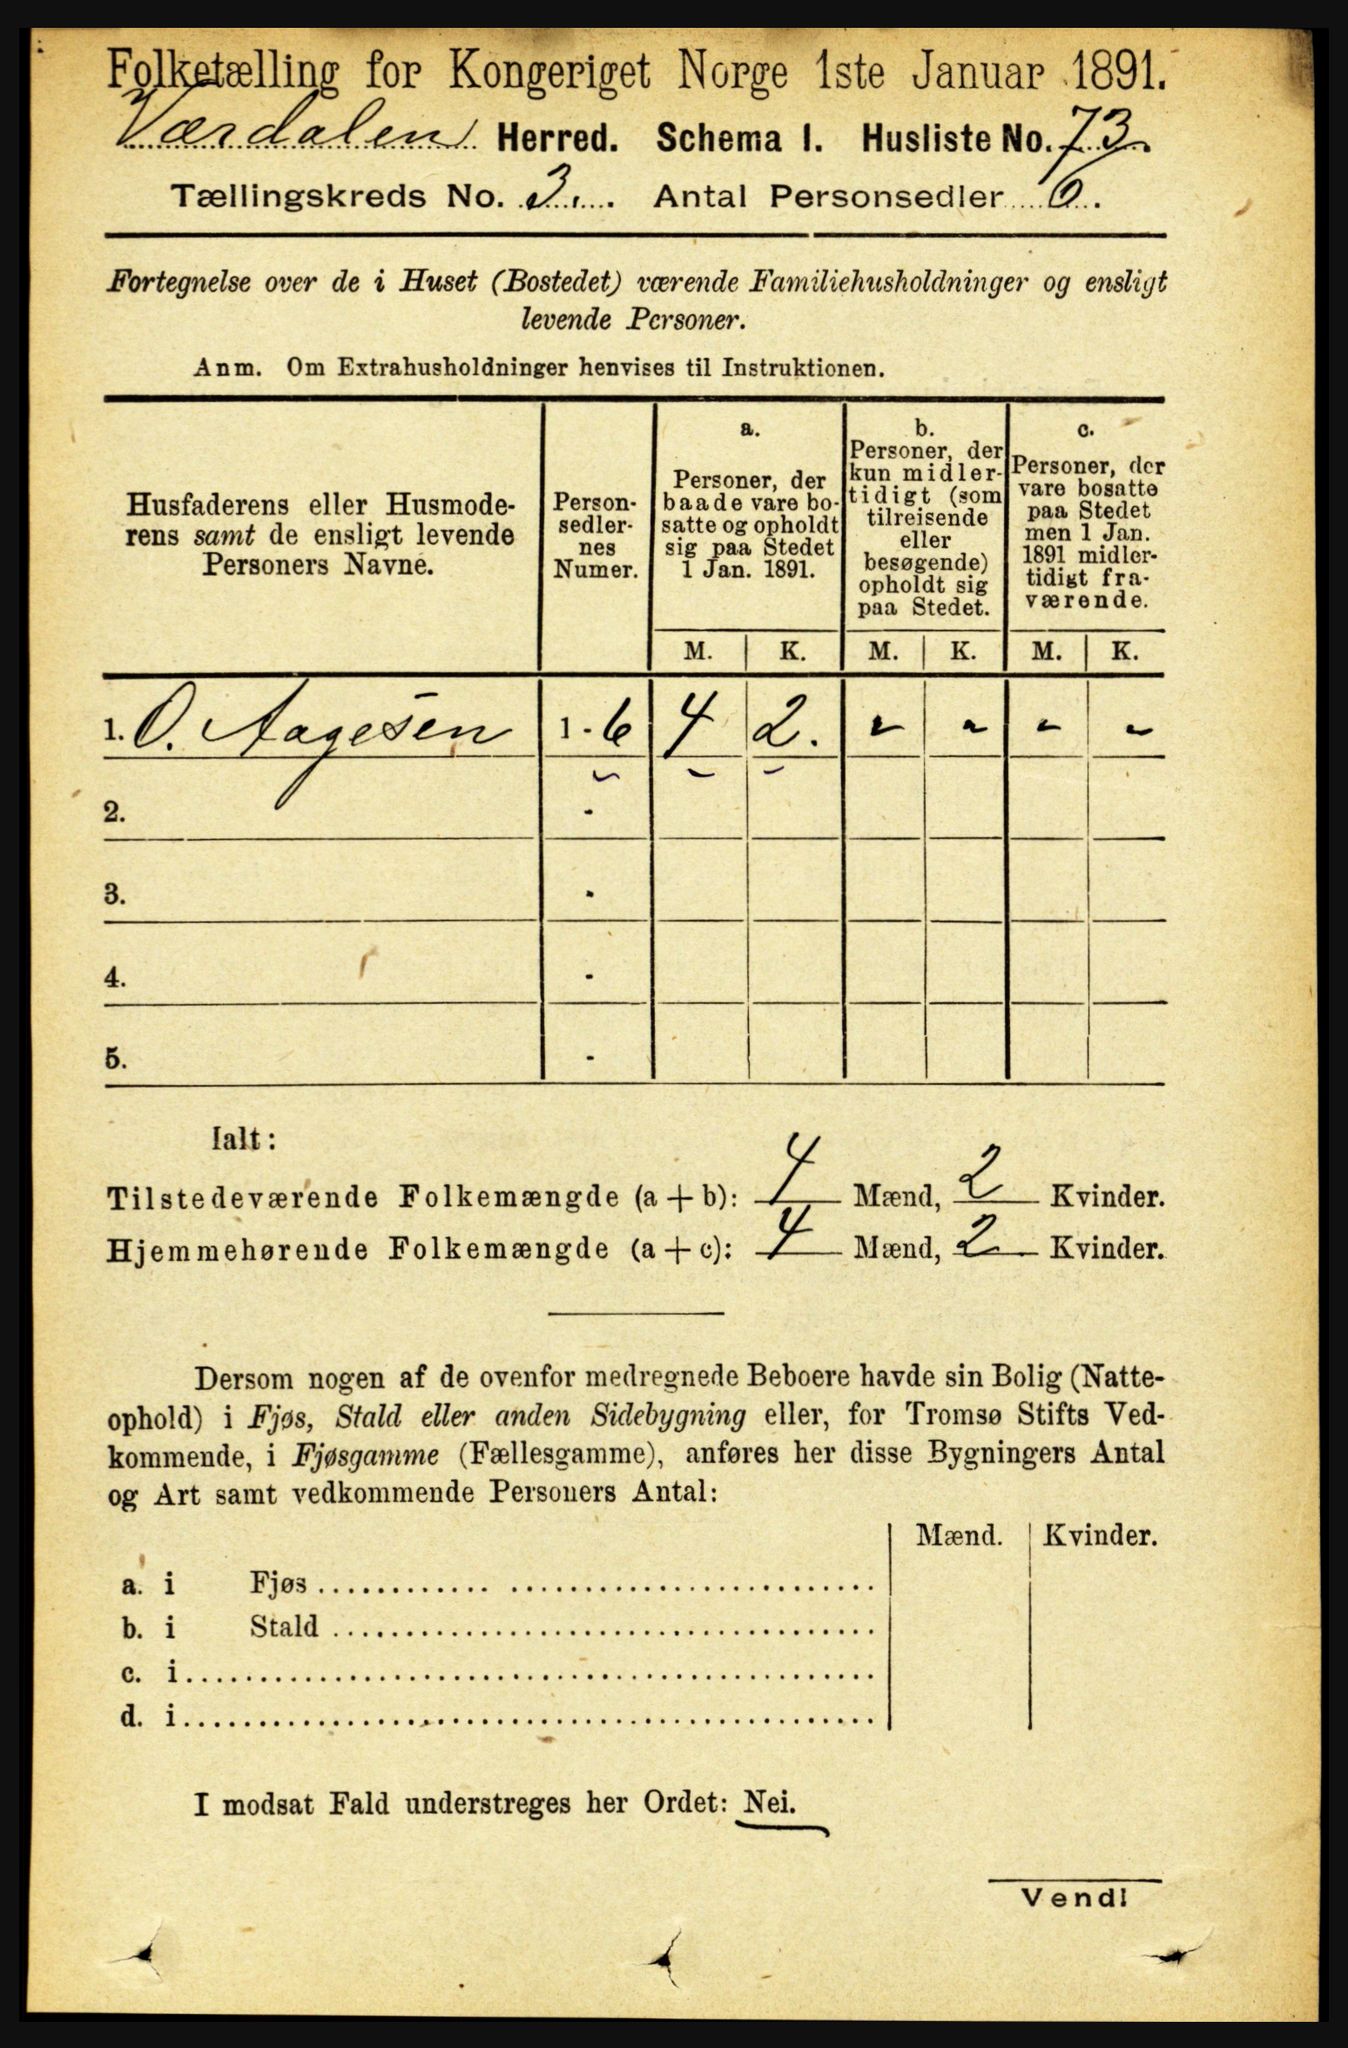 Folketælling for Kongeriget Norge 1ste Januar 1891.
Værdalen Herred. Schema I. Husliste No. 73.
Tællingskreds No. 3. Antal Personsedler 6.
Fortegnelse over de i Huset (Bostedet) værende Familiehusholdninger og ensligt
levende Personer.
Anm. Om Extrahusholdninger henvises til Instruktionen.
Husfaderens eller Husmode-
rens samt de ensligt levende
Personers Navne.
Person-
sedler-
nes
Numer.
a.
Personer, der
baade vare bo-
satte og opholdt
sig paa Stedet
1 Jan. 1891.
b.
Personer, der
kun midler-
tidigt (som
tilreisende
eller
besøgende)
opholdt sig
paa Stedet.
c.
Personer, der
vare bosatte
paa Stedet
men 1 Jan.
1891 midler-
tidigt fra-
værende.
M. K. M. K. M. K.
1. O. Aagesen 1 - 6 4 2. - - - -
2. -
3. -
4. -
5. -
Ialt:
Tilstedeværende Folkemængde (a + b): 4 Mænd, 2 Kvinder.
Hjemmehørende Folkemængde (a + c): 4 Mænd, 2 Kvinder.
Dersom nogen af de ovenfor medregnede Beboere havde sin Bolig (Natte-
ophold) i Fjøs, Stald eller anden Sidebygning eller, for Tromsø Stifts Ved-
kommende, i Fjøsgamme (Fællesgamme), anføres her disse Bygningers Antal
og Art samt vedkommende Personers Antal:
Mænd. Kvinder.
a. i Fjøs
b. i Stald
c. i
d. i
I modsat Fald understreges her Ordet: Nei.
Vend!